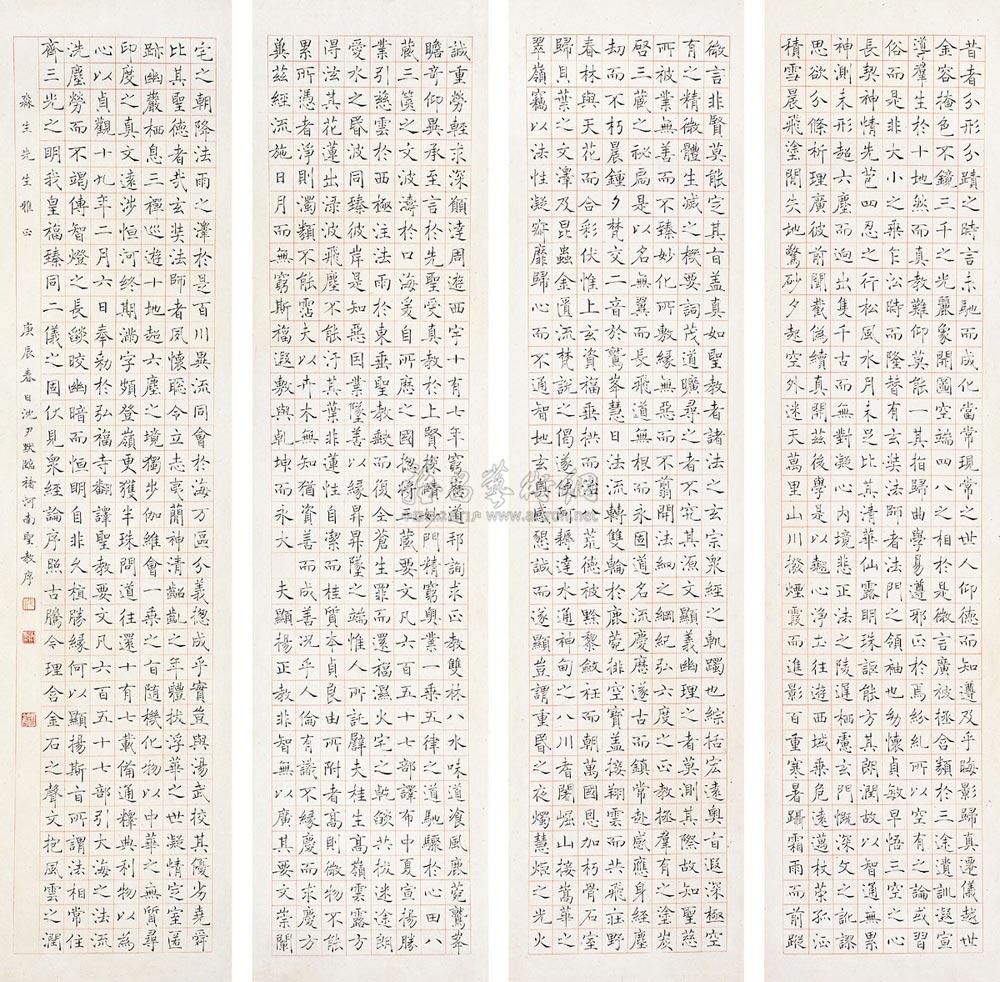 昔者分形分蹟之時言未馳而成化當常現常之世人仰德而知遵及乎晦影歸真遷儀越世
金容掩色不鏡三千之光麗象開圖空端四八之相於是微言廣被拯含類於三途遺訓遐宣
導羣生於十地然而真教難仰莫能一其指歸曲學易遵邪正於焉紛糾所以空有之論或習
俗而是非大小之乘乍沿時而隆替有玄奘法師者法門之領袖也幼懷貞敏早悟三空之心
長契神情先苞四忍之行松風水月未足比其清華仙露明珠詎能方其朗潤故以智通無累
神測未形超六塵而迥出隻千古而無對凝心內境悲正法之陵遲栖慮玄門慨深文之訛謬
思欲分條析理廣彼前聞截偽續真開茲後學是以翹心淨土往遊西域乘危遠邁杖策孤征
積雪晨飛塗閒失地驚砂夕起空外迷天萬里山川撥煙霞而進影百重寒暑躡霜雨而前蹤
誠重勞輕求深願達周遊西宇十有七年窮歷道邦詢求正教雙林八水味道飡風鹿菀鷲峯
瞻奇仰異承至言於先聖受真教於上賢探賾妙門精窮奧業一乘五律之道馳驟於心田八
藏三篋之文波濤於口海爰自所歷之國總將三藏要文凡六百五十七部譯布中夏宣揚勝
業引慈雲於西極注法雨於東垂聖教缺而復全蒼生罪而還福濕火宅之乾燄共拔迷途朗
愛水之昏波同臻彼岸是知惡因業墜善以緣昇昇墜之端惟人所託譬夫桂生高嶺雲露方
得泫其花蓮出淥波飛塵不能汙其葉非蓮性自潔而桂質本貞良由所附者高則微物不能
累所憑者淨則濁類不能霑夫以卉木無知猶資善而成善況乎人倫有識不緣慶而求慶方
冀茲經流施日月而無窮斯福遐敷與乾坤而永大　夫顯揚正教非智無以廣其要文崇闡
微言非賢莫能定其旨蓋真如聖教者諸法之玄宗眾經之軌躅也綜括宏遠奧旨遐深極空
有之精微體生滅之機要詞茂道曠尋之者不究其源文顯義幽理之者莫測其際故知聖慈
所被業無善而不臻妙化所敷緣無惡而不翦開法網之綱紀弘六度之正教拯羣有之塗炭
啓三藏之秘扃是以名無翼而長飛道無根而永固道名流慶歷遂古而鎮常赴感應身經塵
劫而不朽晨鐘夕梵交二音於鷲峯慧日法流轉雙輪於鹿菀排空寶蓋接翔雲而共飛莊野
春林與天花而合彩伏惟上玄資福垂拱而治八荒德被黔黎斂衽而朝萬國恩加朽骨石室
歸貝葉之文澤及昆蟲金匱流梵說之偈遂使阿耨達水通神甸之八川耆闍崛山接嵩華之
翠嶺竊以法性凝寂靡歸心而不通智地玄奧感懇誠而遂顯豈謂重昏之夜燭慧炬之光火
宅之朝降法雨之澤於是百川異流同會於海萬區分義總成乎實豈與湯武校其優劣堯舜
比其聖德者哉玄奘法師者夙懷聰令立志夷簡神清齠齔之年體拔浮華之世凝情定室匿
跡幽巖栖息三禪巡遊十地超六塵之境獨步伽維會一乘之旨隨機化物以中華之無質尋
印度之真文遠涉恒河終期滿字頻登嶺更獲半珠問道往還十有七載備通釋典利物以為
心以貞觀十九年二月六日奉勅於弘福寺翻譯聖教要文凡六百五十七部引大海之法流
洗塵勞而不竭傳智燈之長燄皎幽暗而恒明自非久植勝緣何以顯揚斯旨所謂法相常住
齊三光之明我皇福臻同二儀之固伏見眾經論序照古騰今理含金石之聲文抱風雲之潤
淼生先生雅正　庚辰春日沈尹默臨褚河南聖教序